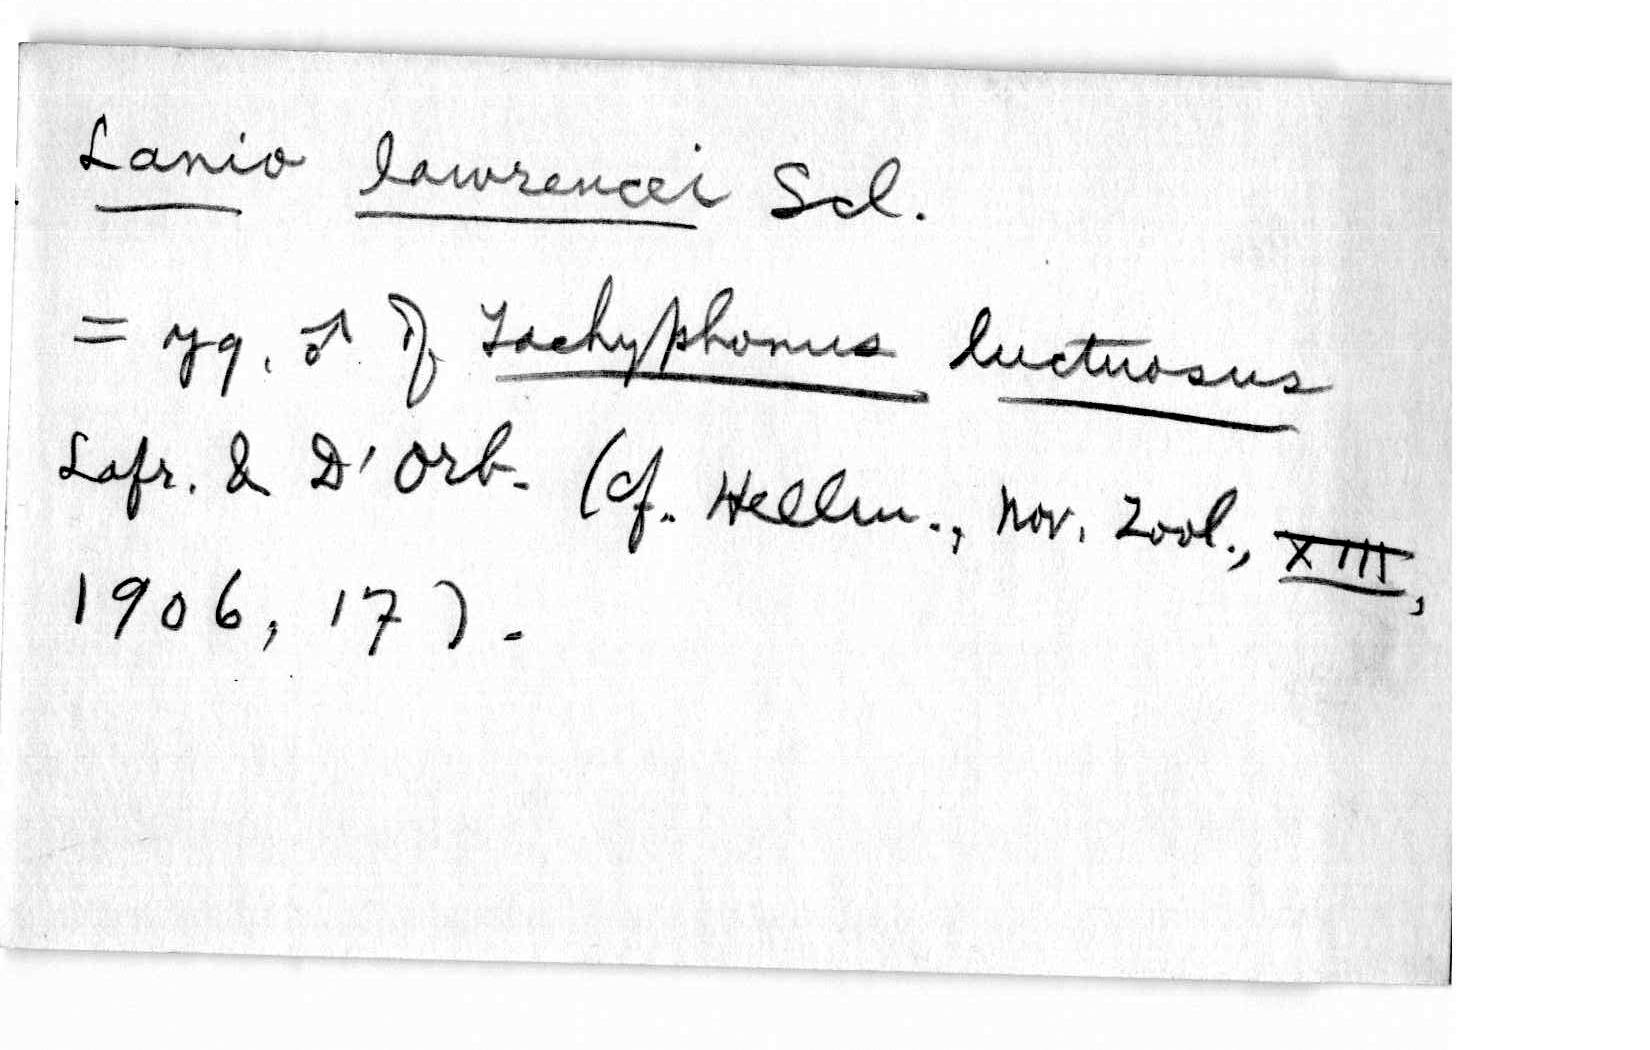 Lanio lawrencei Scl.
= yg. ♂ of Tachyphonus luctuosus
Lafr. & D'Orb. (cf. Hellm., Nov. Zool., XIII,
1906, 17).